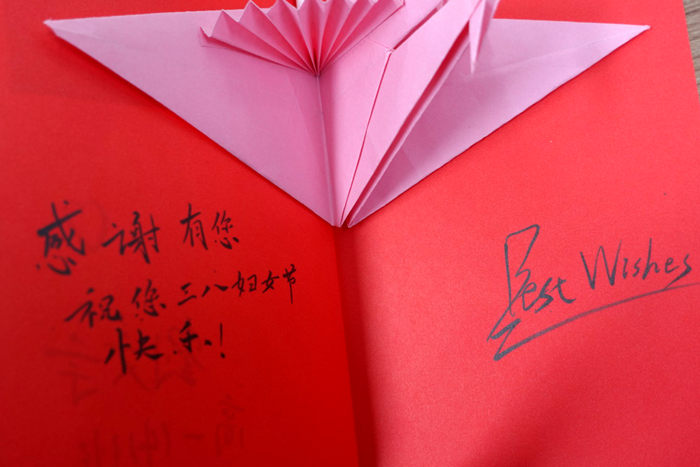 感谢有您
祝您三八妇女节
快乐!
Best Wishes